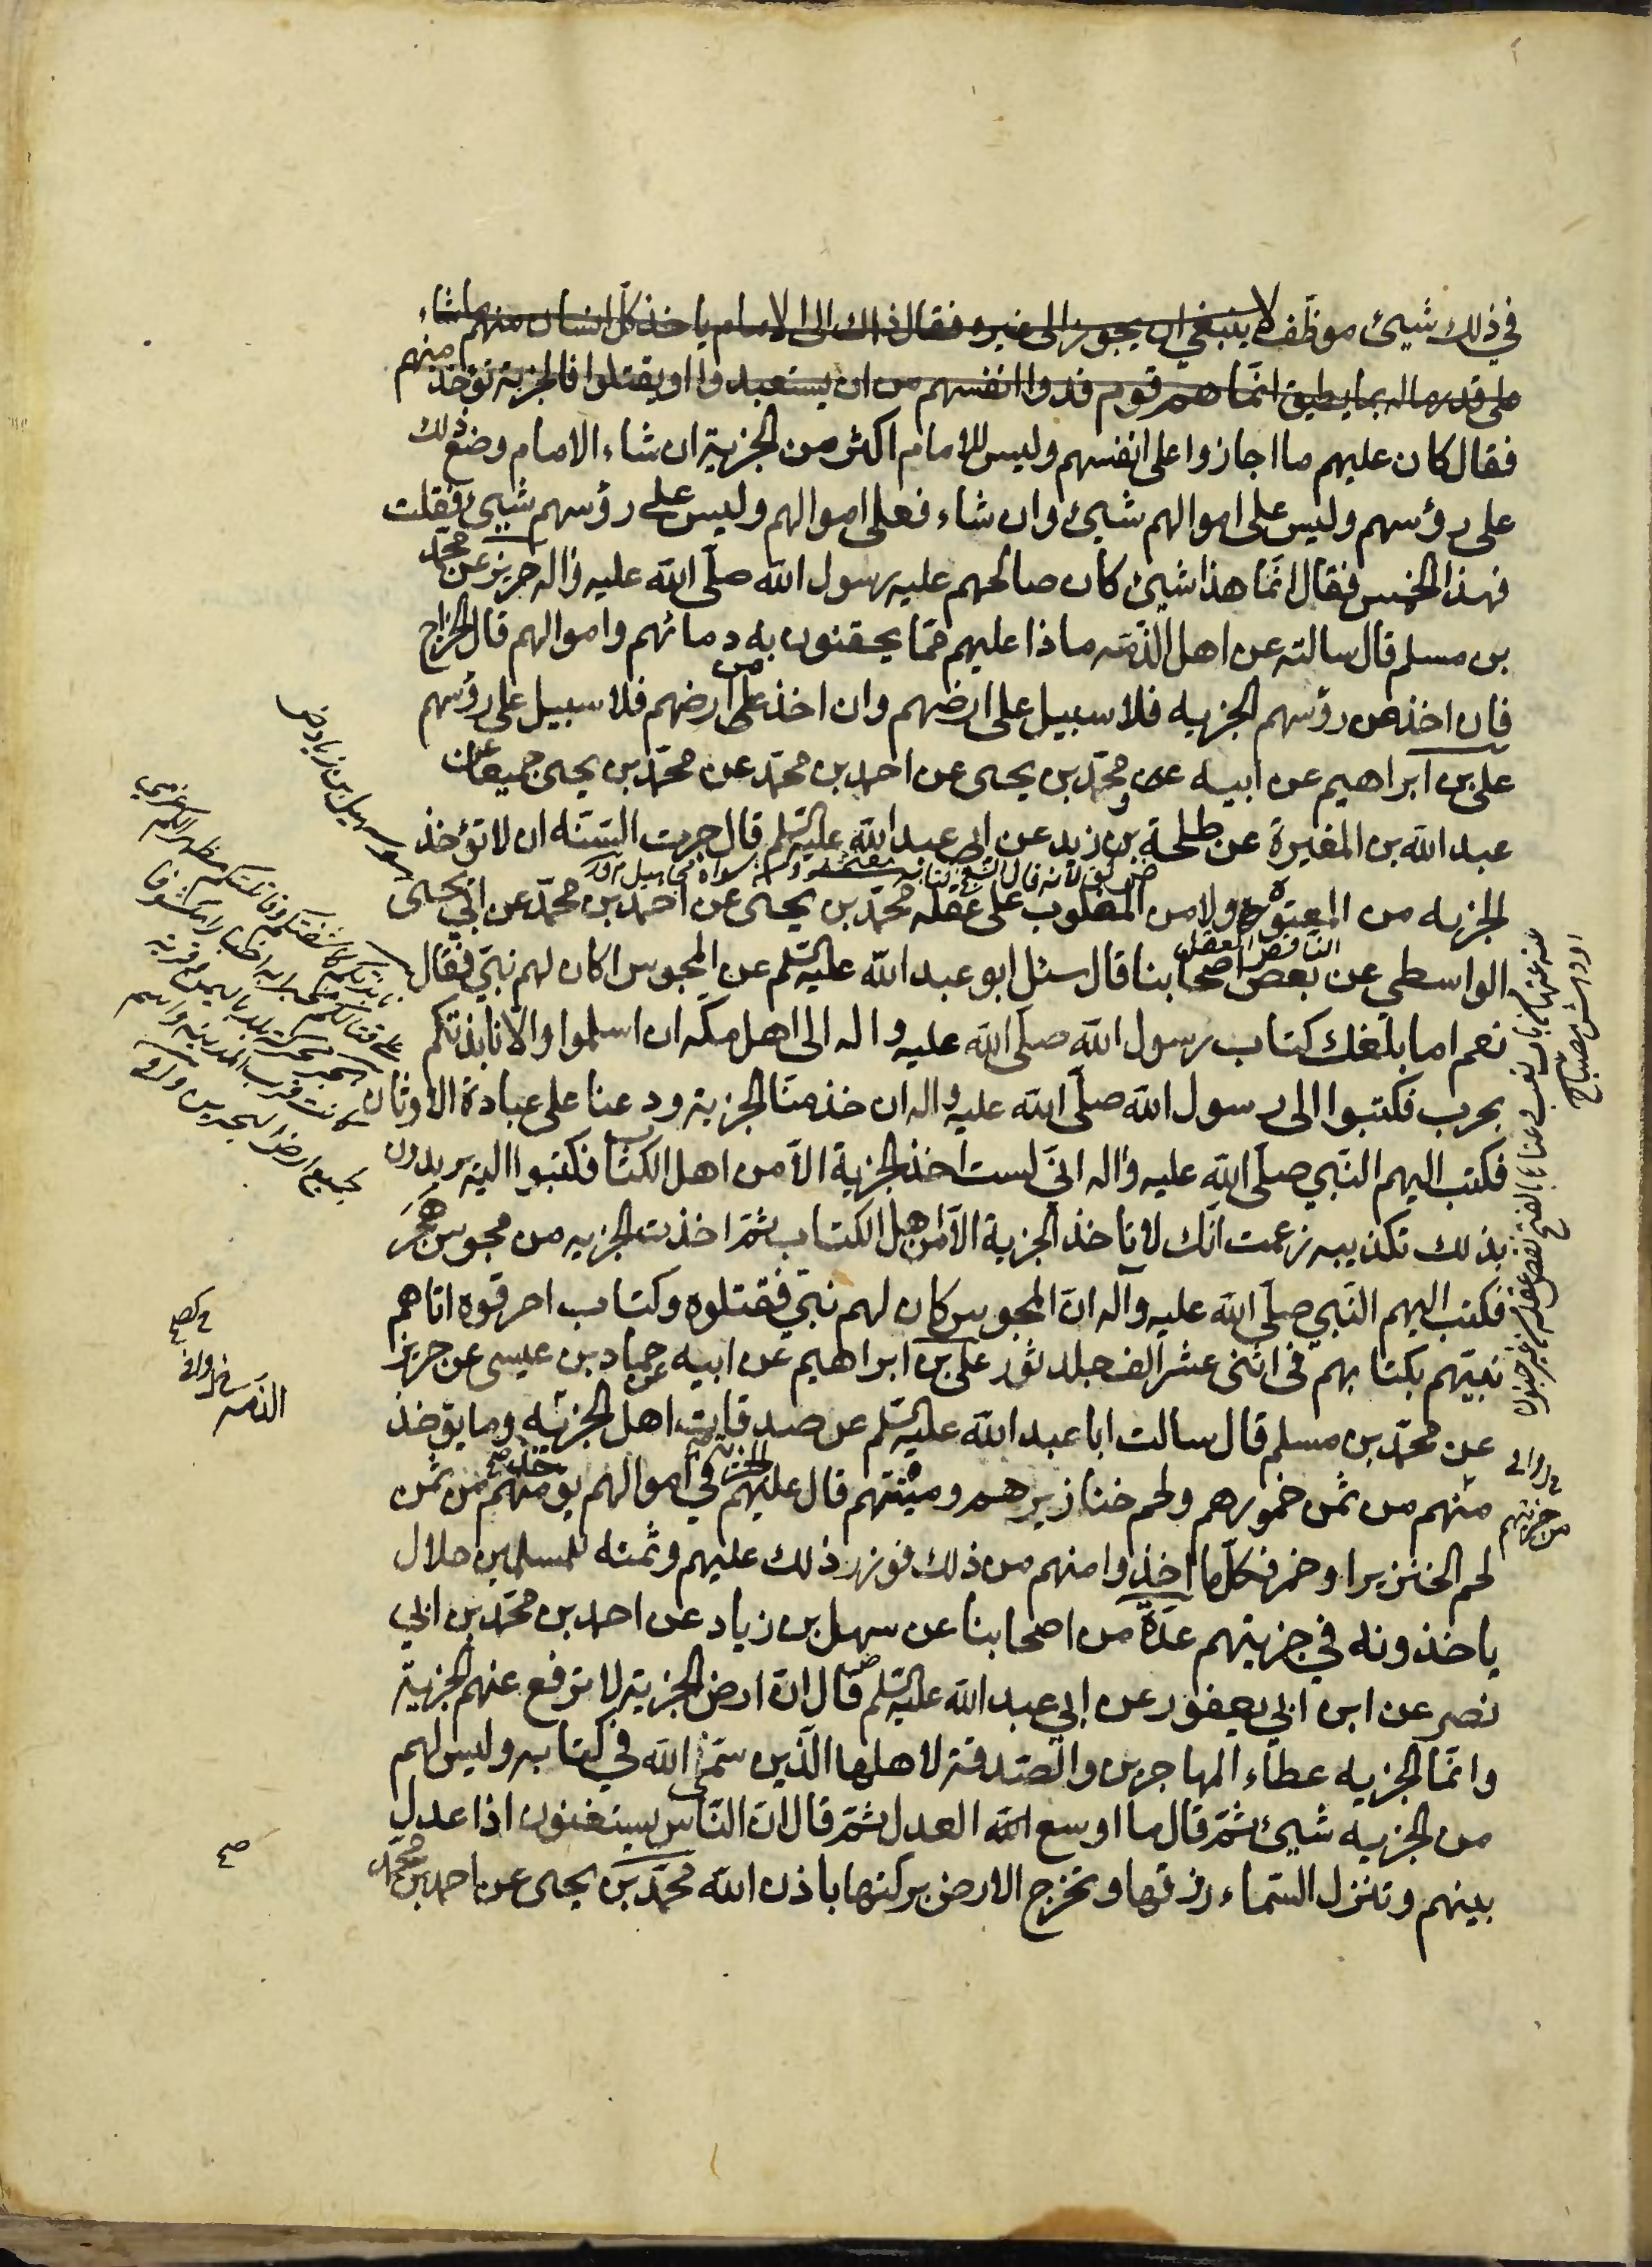 في ذلك شيئ موظف لا ينبغي ان يجوز الى غيره فقال ذاك الى الامام ياخذ كل انسان منهم ما شاء
على قدر ماله بما يطيق انّما هم قوم فدوا انفسهم من ان يستعبدوا او يقتلوا فالجزية تؤخذ منهم
فقال كان عليهم ما اجازوا على انفسهم وليس للامام اكثر من الجزية ان شاء الامام وضع ذلك
على رؤسهم وليس على اموالهم شيئ وان شاء فعلى اموالهم وليس على رؤسهم شيئ فقلت
فهذا الخمس فقال انّما هذا شيئ كان صالحهم عليه رسول الله صلّى الله عليه واله حريز عن محمّد
بن مسلم قال سالته عن اهل الذمّة ماذا عليهم ممّا يحقنون به دمائهم واموالهم قال الخراج
فان اخذ من رؤسهم الجزيه فلا سبيل على ارضهم وان اخذ من ارضهم فلا سبيل على رؤسهم
علي بن ابراهيم عن ابيه و محمّد بن يحيى عن احمد بن محمّد عن محمّد بن يحيى جميعا عن
عبد الله بن المغيرة عن طلحة بن زيد عن ابي عبد الله عليه السّلم قال جرت السّنّه ان لا تؤخذ
الجزيه من المعتوه ولا من المغلوب على عقله محمّد بن يحيى عن احمد بن محمّد عن ابي يحيى
الناقص العقل
الواسطي عن بعض اصحابنا قال سئل ابو عبد الله عليه السّلم عن المجوس اكان لهم نبيّ فقال
نعم اما بلغك كتاب رسول الله صلّى الله عليه واله الى اهل مكّه ان اسلموا والّا نابذتكم
بحرب فكتبوا الى رسول الله صلّى الله عليه واله ان خذ منّا الجزية ودعنا على عبادة الاوثان
فكتب اليهم النّبي صلّى الله عليه واله انّي لست اخذ الجزية الّا من اهل الكتاب فكتبوا اليه يريدون
بذلك تكذيبه زعمت انّك لا تاخذ الجزية الّا من اهل الكتاب ثمّ اخذت الجزيه من مجوس هجر
فكتب اليهم النّبي صلّى الله عليه وآله انّ المجوس كان لهم نبيّ فقتلوه وكتاب احرقوه اتاهم
نبيّهم بكتابهم في اثنى عشر الف جلد ثور علي بن ابراهيم عن ابيه عن حماد بن عيسى عن حريز
عن محمّد بن مسلم قال سالت ابا عبد الله عليه السّلم عن صدقات اهل الجزيه وما يؤخذ
منهم من ثمن خمورهم ولحم خنازيرهم وميتتهم قال عليهم الجزية في اموالهم يؤخذ منهم من ثمن
لحم الخنزير او خمر فكلّما اخذوا منهم من ذلك فوزر ذلك عليهم وثمنه للمسلمين حلال
ياخذونه في جزيتهم عدّة من اصحابنا عن سهل بن زياد عن احمد بن محمّد بن ابي
نصر عن ابن ابي يعفور عن ابي عبد الله عليه السّلم قال انّ ارض الجزية لا ترفع عنهم الجزية
وانّما الجزيه عطاء المهاجرين والصّدقة لاهلها الّذين سمّى الله في كتابه وليس لهم
من الجزيه شيئ ثمّ قال ما اوسع الله العدل ثمّ قال انّ النّاس يستغنون اذا عدل
بينهم وتنزل السّماء رزقها وتخرج الارض بركتها باذن الله محمّد بن يحيى عن احمد بن محمّد